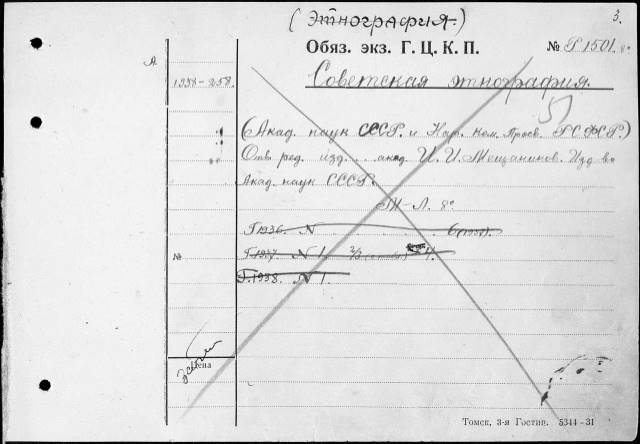 (Этнография.)
3.
Обяз. экз. Г. Ц. К. П. № Р 1501. 8°
А
1938-258. Советская этнография.
51
(Акад. наук СССР. и Нар. ком. Просв. Р.С.Ф.С.Р.)
Отв. ред. изд. . . акад. И. И. Мещанинов. Изд-во
Акад. наук СССР.
М-Л. 8°
Г 1936. N 6
№ Г 1937. N 1. 2/3 4.
Г. 1938. N 1.
Цена
Томск, 3-я Гостип. 5344-31